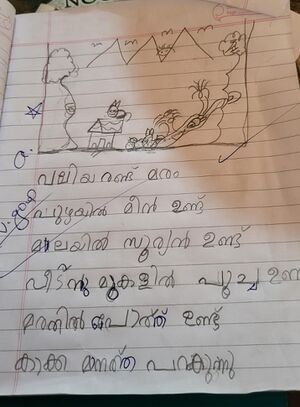 വലിയ രണ്ട് മരം
പുഴയിൽ മീൻ ഉണ്ട്
മലയിൽ സൂര്യൻ ഉണ്ട്
വീടിനു മുകളിൽ പൂച്ച ഉണ്ട
മരത്തിൽ പൊത്ത് ഉണ്ട്
കാക്ക മാനത്ത പറക്കുന്നു